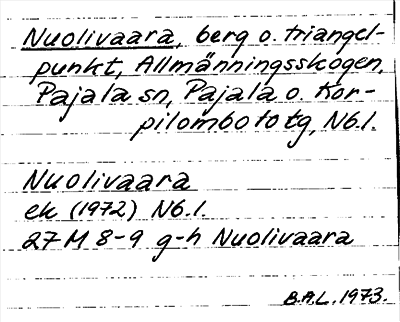 Nuolivaara, berg o. triangel-
punkt, Allmänningsskogen,
Pajala sn, Pajala o. Kor-
pilombolo tg, Nb.l.
Nuolivaara
ek (1972) Nb.l.
27M 8-9 g-h Nuolivaara
B.A.L. 1973.